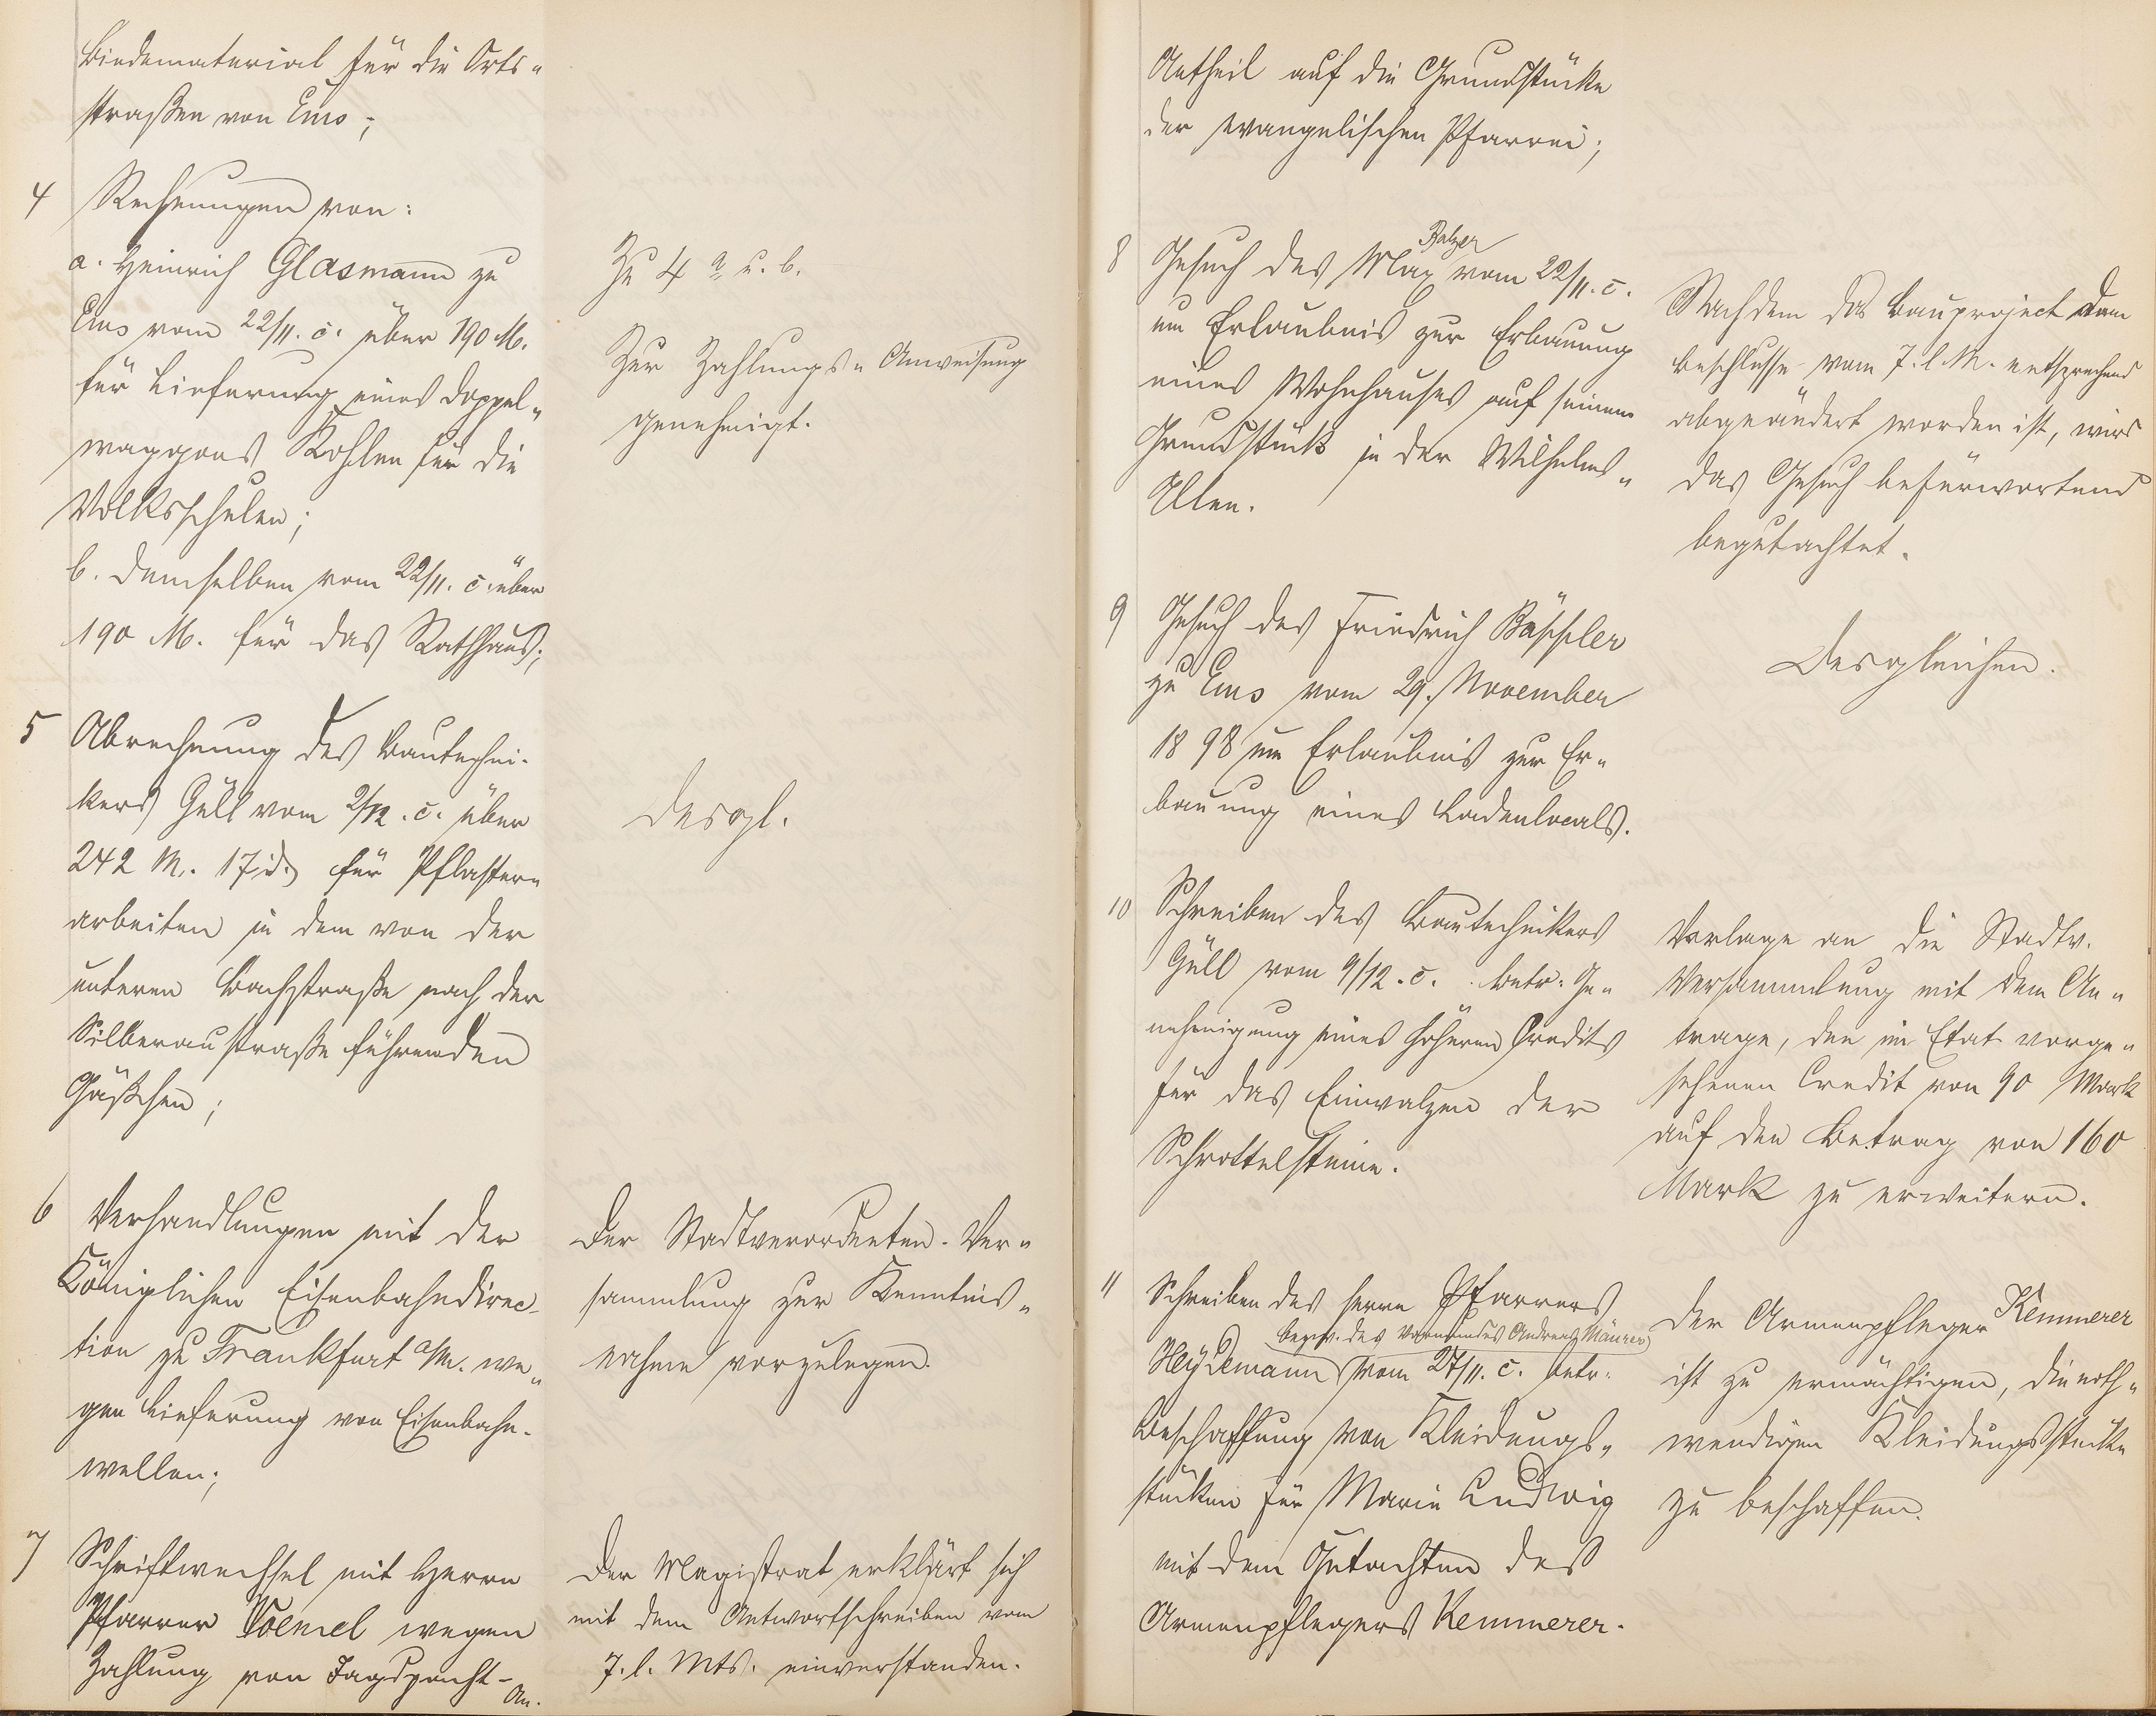 Bindematerial für die Orts-
straßen von Ems;
4 Rechnungen von:
a. Heinrich Glasmann zu
Ems vom 22/11. c. über 190 M.
für Lieferung eines Doppel-
waggons Kohlen für die
Volksschulen;
b. demselben vom 22/11. c. über
190 M. für das Rathhaus;
Zu 4 a u. b.
Zur Zahlungs-Anweisung
genehmigt.
5 Abrechnung des Bautechni-
kers Güll vom 2/12. c. über
242 M. 17 d. für Pflaster-
arbeiten in dem von der
unteren Bachstraße nach der
Silberaustraße führenden
Gäßchen;
desgl.
6 Verhandlungen mit der
Königlichen Eisenbahndirec-
tion zu Frankfurt a/M. we-
gen Lieferung von Eisenbahn-
wellen;
Der Stadtverordneten-Ver-
sammlung zur Kenntnis-
nahme vorzulegen.
7 Schriftwechsel mit Herrn
Pfarrer Voemel wegen
Zahlung von Jagdpacht-
An-
Der Magistrat erklärt sich
mit dem Antwortschreiben vom
7. l. Mts. einverstanden.
Antheil auf die Grundstücke
der evangelischen Pfarrei;
8 Gesuch des Max Balzer vom 22/11. c.
um Erlaubnis zur Erbauung
eines Wohnhauses auf seinem
Grundstück in der Wilhelms-
Allee.
Nachdem das Bauproject dem
Beschlusse vom 7. l. M. entsprechend
abgeändert worden ist, wird
das Gesuch befürwortend
begutachtet.
9 Gesuch des Friedrich Bässler
zu Ems vom 29. November
1898 um Erlaubnis zur Er-
bauung eines Ladenlocals.
Desgleichen.
10 Schreiben des Bautechnikers
Güll vom 9/12. c. betr. Ge-
nehmigung eines höheren Credits
für das Einwalzen der
Schrottelsteine.
Vorlage an die Stadtv.
Versammlung mit dem An-
trage, den im Etat vorge-
sehenen Credit von 90 Mark
auf den Betrag von 160
Mark zu erweitern.
11 Schreiben des Herrn Pfarrers
Heydemann bezw. des Vormundes Andreas Maurer vom 27/11. c. betr.
Beschaffung von Kleidungs-
stücken für Marie Ludwig
mit dem Gutachten des
Armenpflegers Kemmerer.
Der Armenpfleger Kemmerer
ist zu ermächtigen, die noth-
wendigen Kleidungsstücke
zu beschaffen.